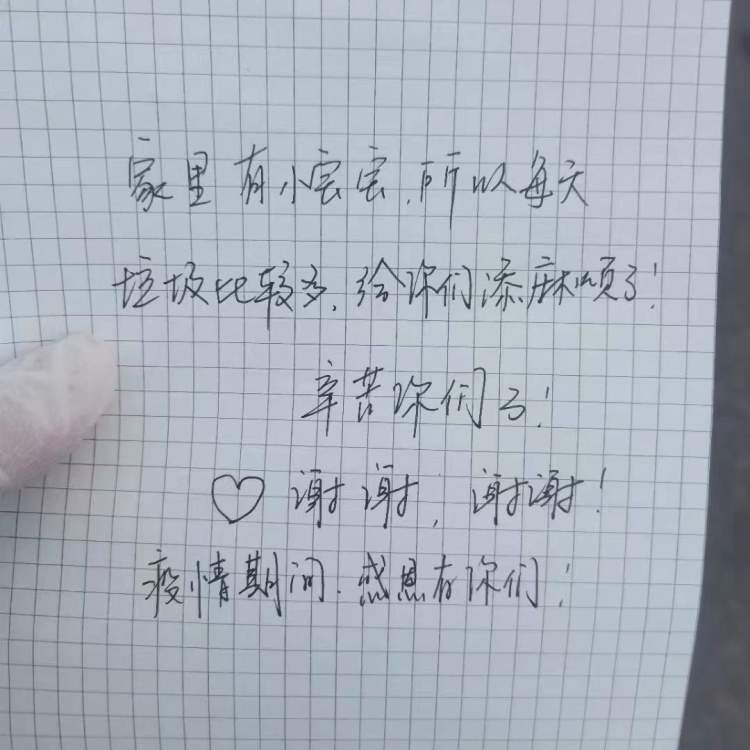 家里有小宝宝,所以每天
垃圾比较多,给你们添麻烦了!
辛苦你们了!
♡谢谢,谢谢!
疫情期间,感恩有你们!